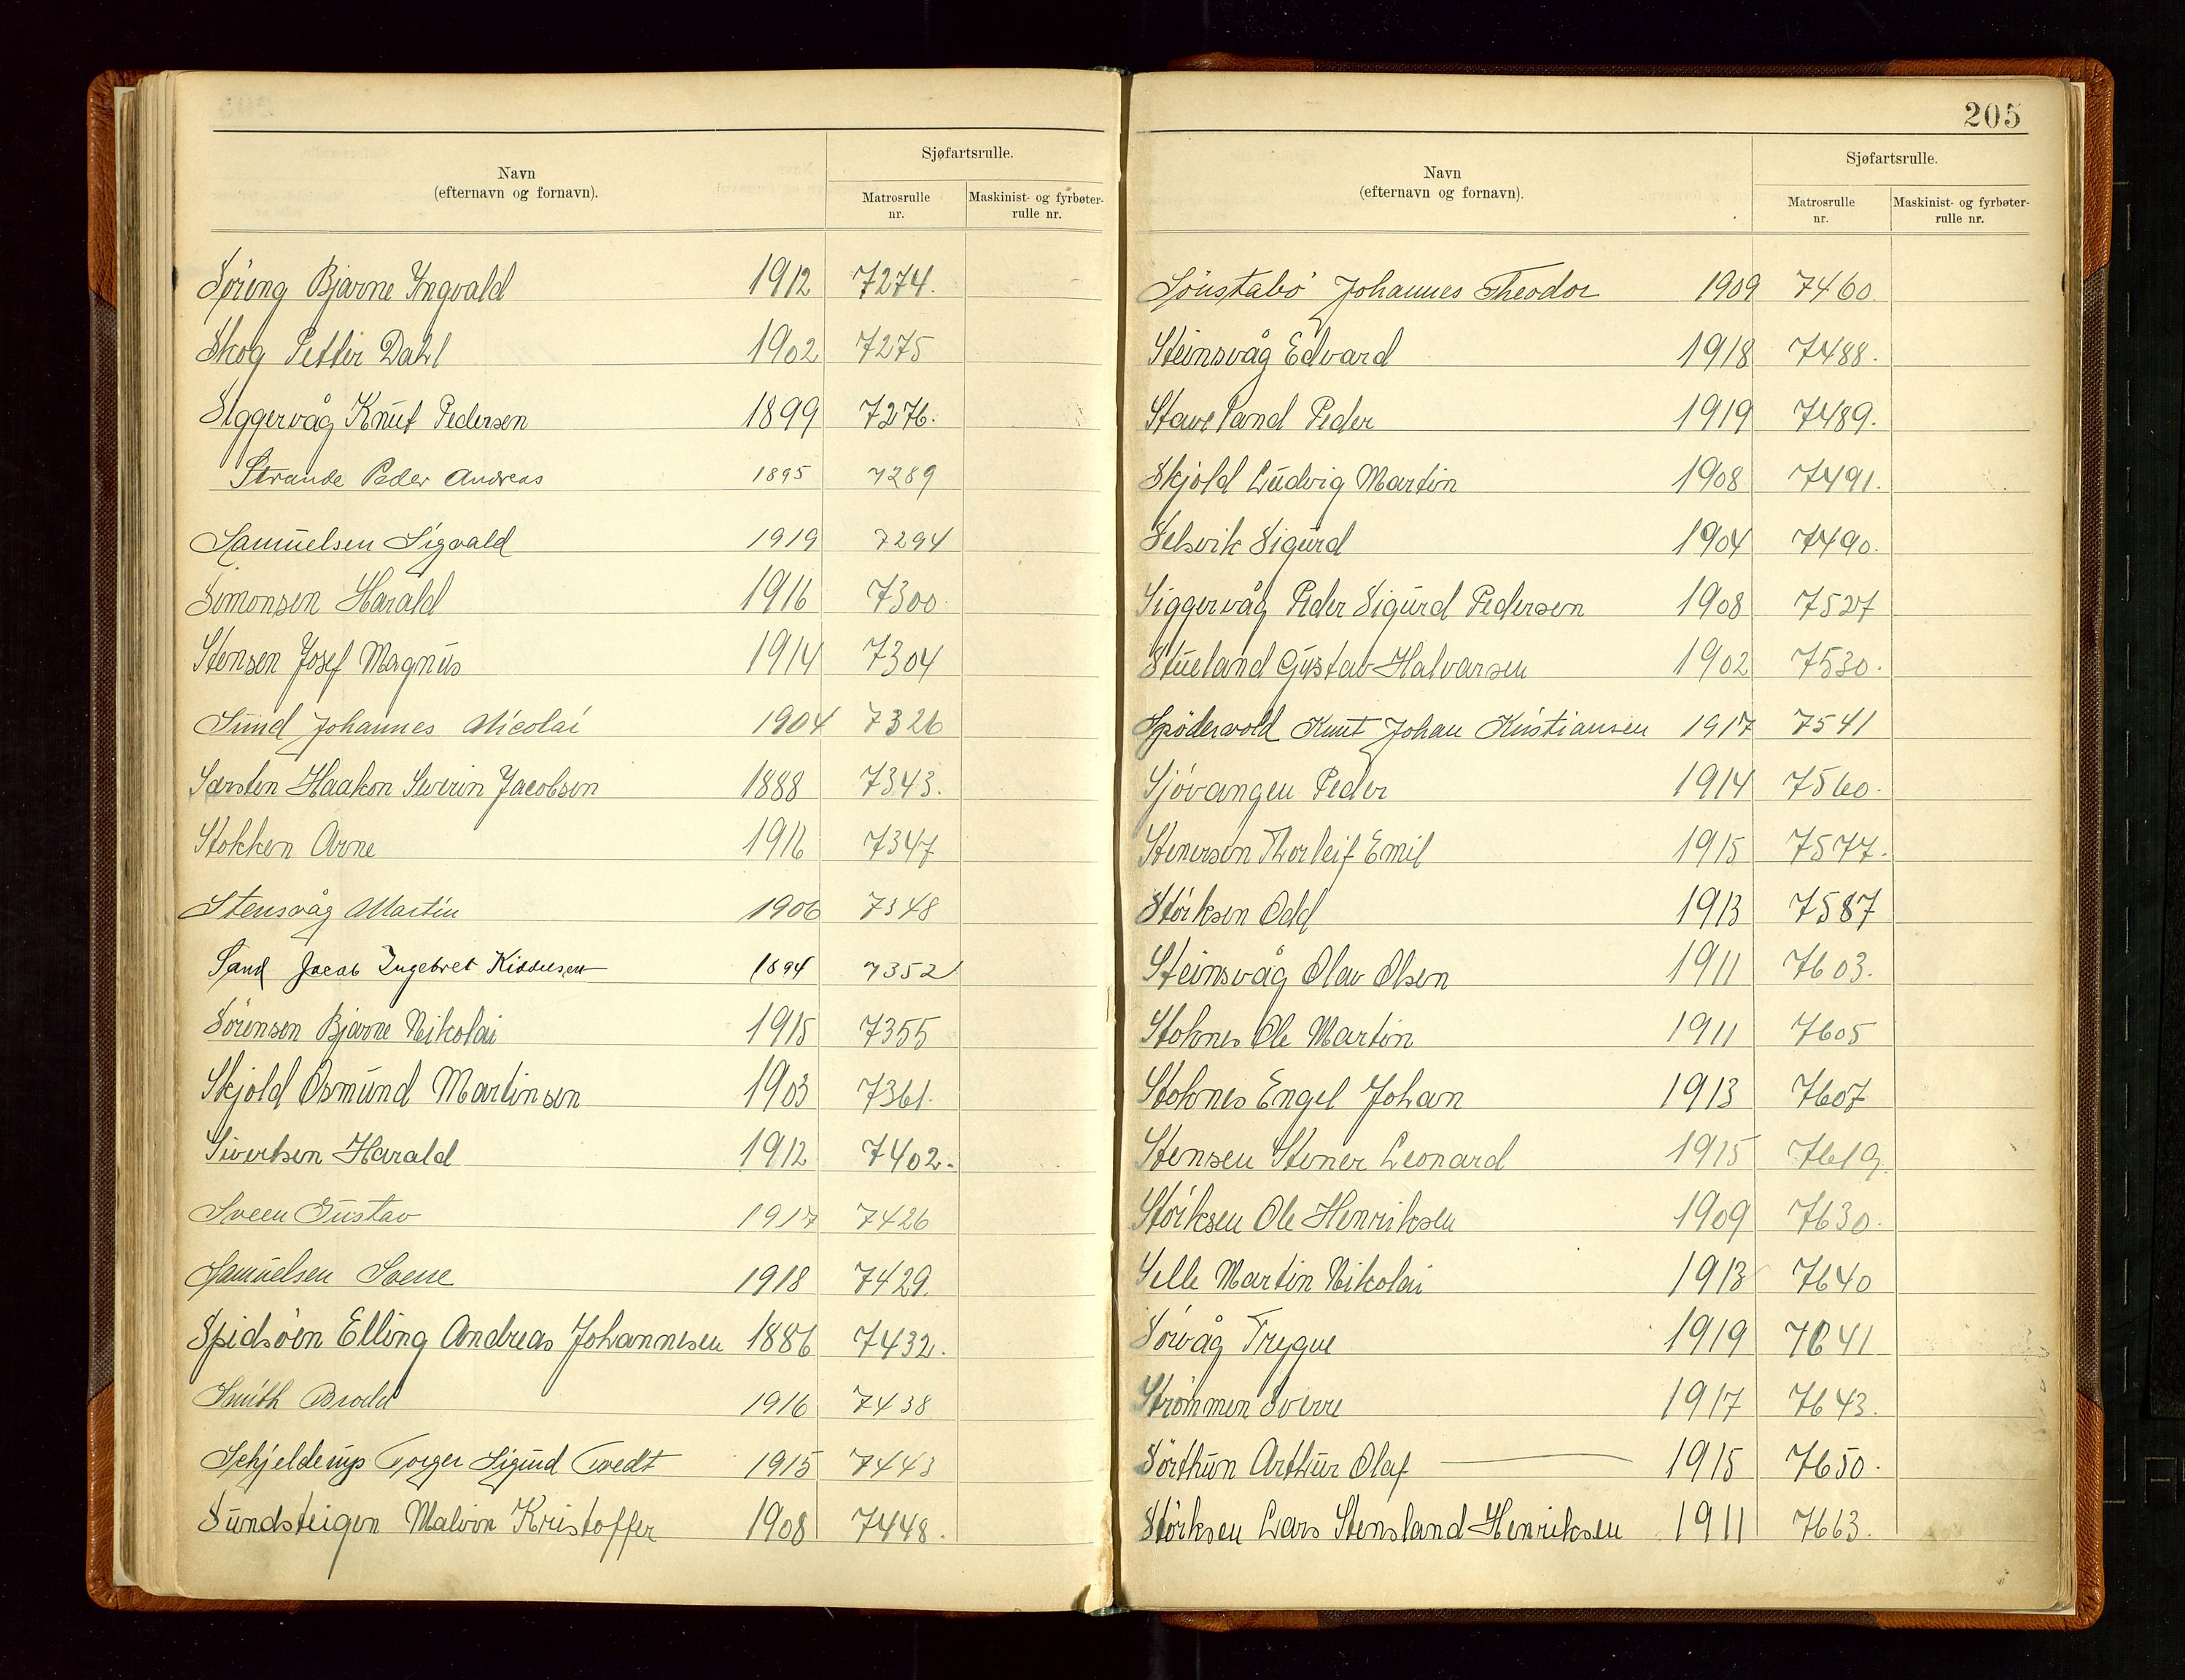 Navn
(efternavn og fornavn).
Sjøfartsrulle.
Matrosrulle
nr.
Maskinist- og fyrbøter-
rulle nr.
Søreng Bjarne Ingvald 1912 7274.
Skog Petter Dahl 1902 7275
Siggervåg Knut Pedersen 1899 7276.
Strande Peder Andreas 1895 7289
Samuelsen Sigvald 1919 7294
Simonsen Harald 1916 7300.
Stensen Josef Magnus 1914 7304
Sund Johannes Nicolai 1904 7326
Særsten Haakon Severin Jacobsen 1888 7343.
Stokken Arne 1916 7347
Stensvåg Martin 1906 7348
Sand Jacob Ingebret 1894 7352
Sörensen Bjarne Nikolai 1915 7355
Skjold Osmund Martinsen 1903 7361.
Sivertsen Harald 1912 7402.
Sveen Gustav 1917 7426
Samuelsen 1918 7429.
Spidsöen Elling Andreas Johannesen 1886 7432.
Smith 1916 7438
Schjelderup Torger Sigurd Tvedt 1915 7443
Sundsteigen Malvin Kristoffer 1908 7448.
205
Navn
(efternavn og fornavn).
Sjøfartsrulle.
Matrosrulle
nr.
Maskinist- og fyrbøter-
rulle nr.
Sönstabö Johannes Theodor 1909 7460.
Steinsvåg Edvard 1918 7488.
Staveland Peder 1919 7489.
Skjold Ludvig Martin 1908 7491.
Selsvik Sigurd 1904 7490.
Siggervåg Peder Sigurd Pedersen 1908 7527
Stueland Gustav Halvarsen 1902 7530.
Spödervold Knut Johan Kristiansen 1917 7541
Sjövangen Peder 1914 7560.
Stenersen Thorleif Emil 1915 7577.
Störksen Odd 1913 7587
Steinsvåg Olav Olsen 1911 7603.
Stoknes Ole Martin 1911 7605
Stoknes Engel Johan 1913 7607
Stensen Stener Leonard 1915 7619.
Störksen Ole Henriksen 1909 7630.
Selle Martin Nikolai 1913 7640
Sörvåg Trygve 1919 7641
Strömmen Sverre 1917 7643.
Sörthun Arthur Olaf 1915 7650.
Störksen Lars Stensland Henriksen 1911 7663.